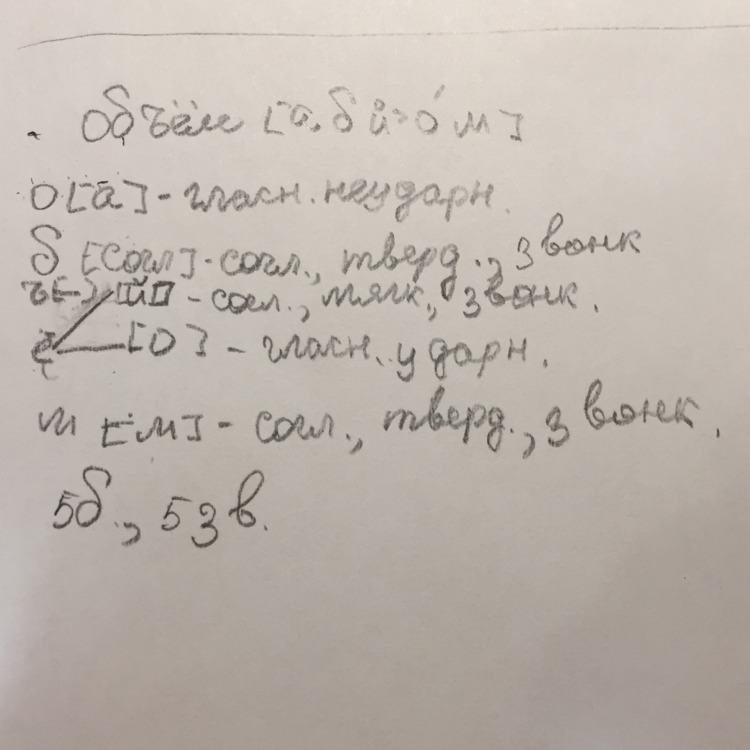 объём [а, б й' о́ м]
о [а] - гласн. неударн.
б [согл] - согл., тверд., звонк
ъ [-] [й] - согл., мягк., звонк.
ё [о] - гласн. ударн.
м [м] - согл., тверд., звонк.
5 б., 5 зв.